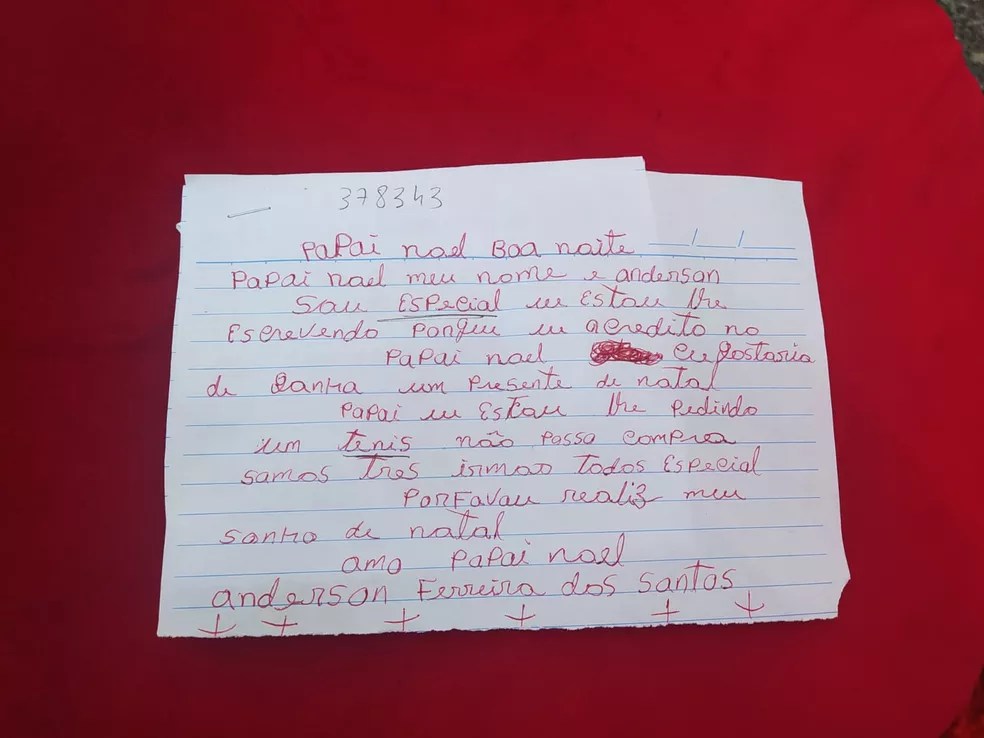 378343
PaPai noel Boa noite __/__/__
PaPai noel meu nome e anderson
Sou ESPecial eu EStou lhe
EScrevendo Porque eu acredito no
PaPai noel eu gostaria
de Ganha um Presente de natal
PaPai eu EStou lhe Pedindo
um tenis não Posso compra
somos três irmao todos ESPecial
PorFavou realiz meu
sonho de natal
amo PaPai noel
anderson Ferreira dos Santos